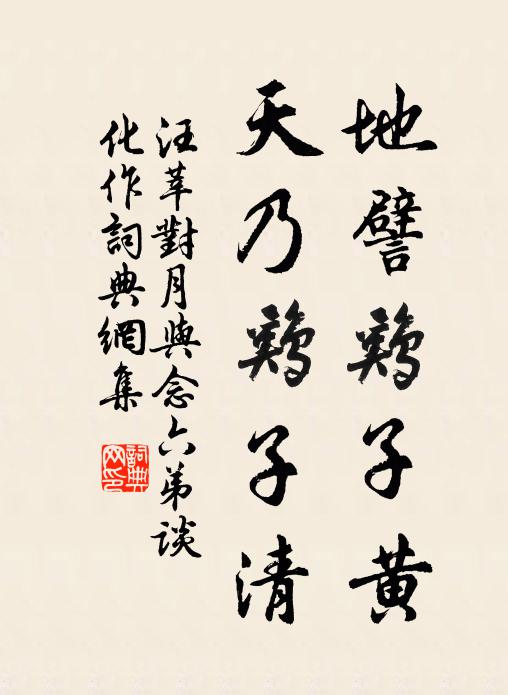 地譬鷄子黄
天乃鷄子清
汪莘對月與念六弟談
化作詞典網集
詞典网印